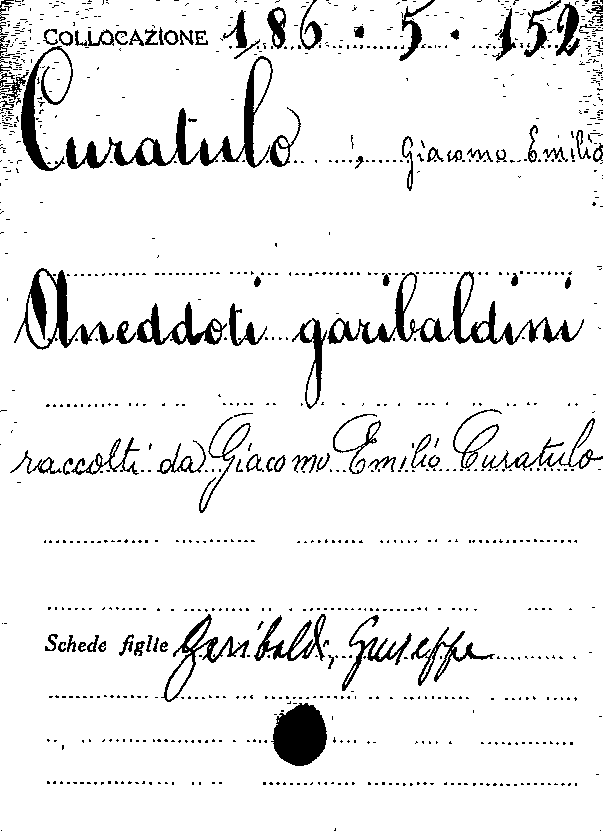 COLLOCAZIONE 186.5.152
Curatulo, Giacomo Emilio
Aneddoti garibaldini
raccolti da Giacomo Emilio Curatulo
Schede figlie Garibaldi, Giuseppe